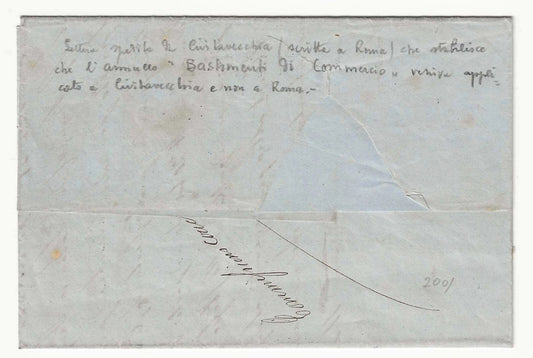 Lettera spedita da Civitavecchia (scritta a Roma) che stabilisce
che l'annullo "Bastimenti di Commercio" venisse appli-
cato a Civitavecchia e non a Roma.-
2001